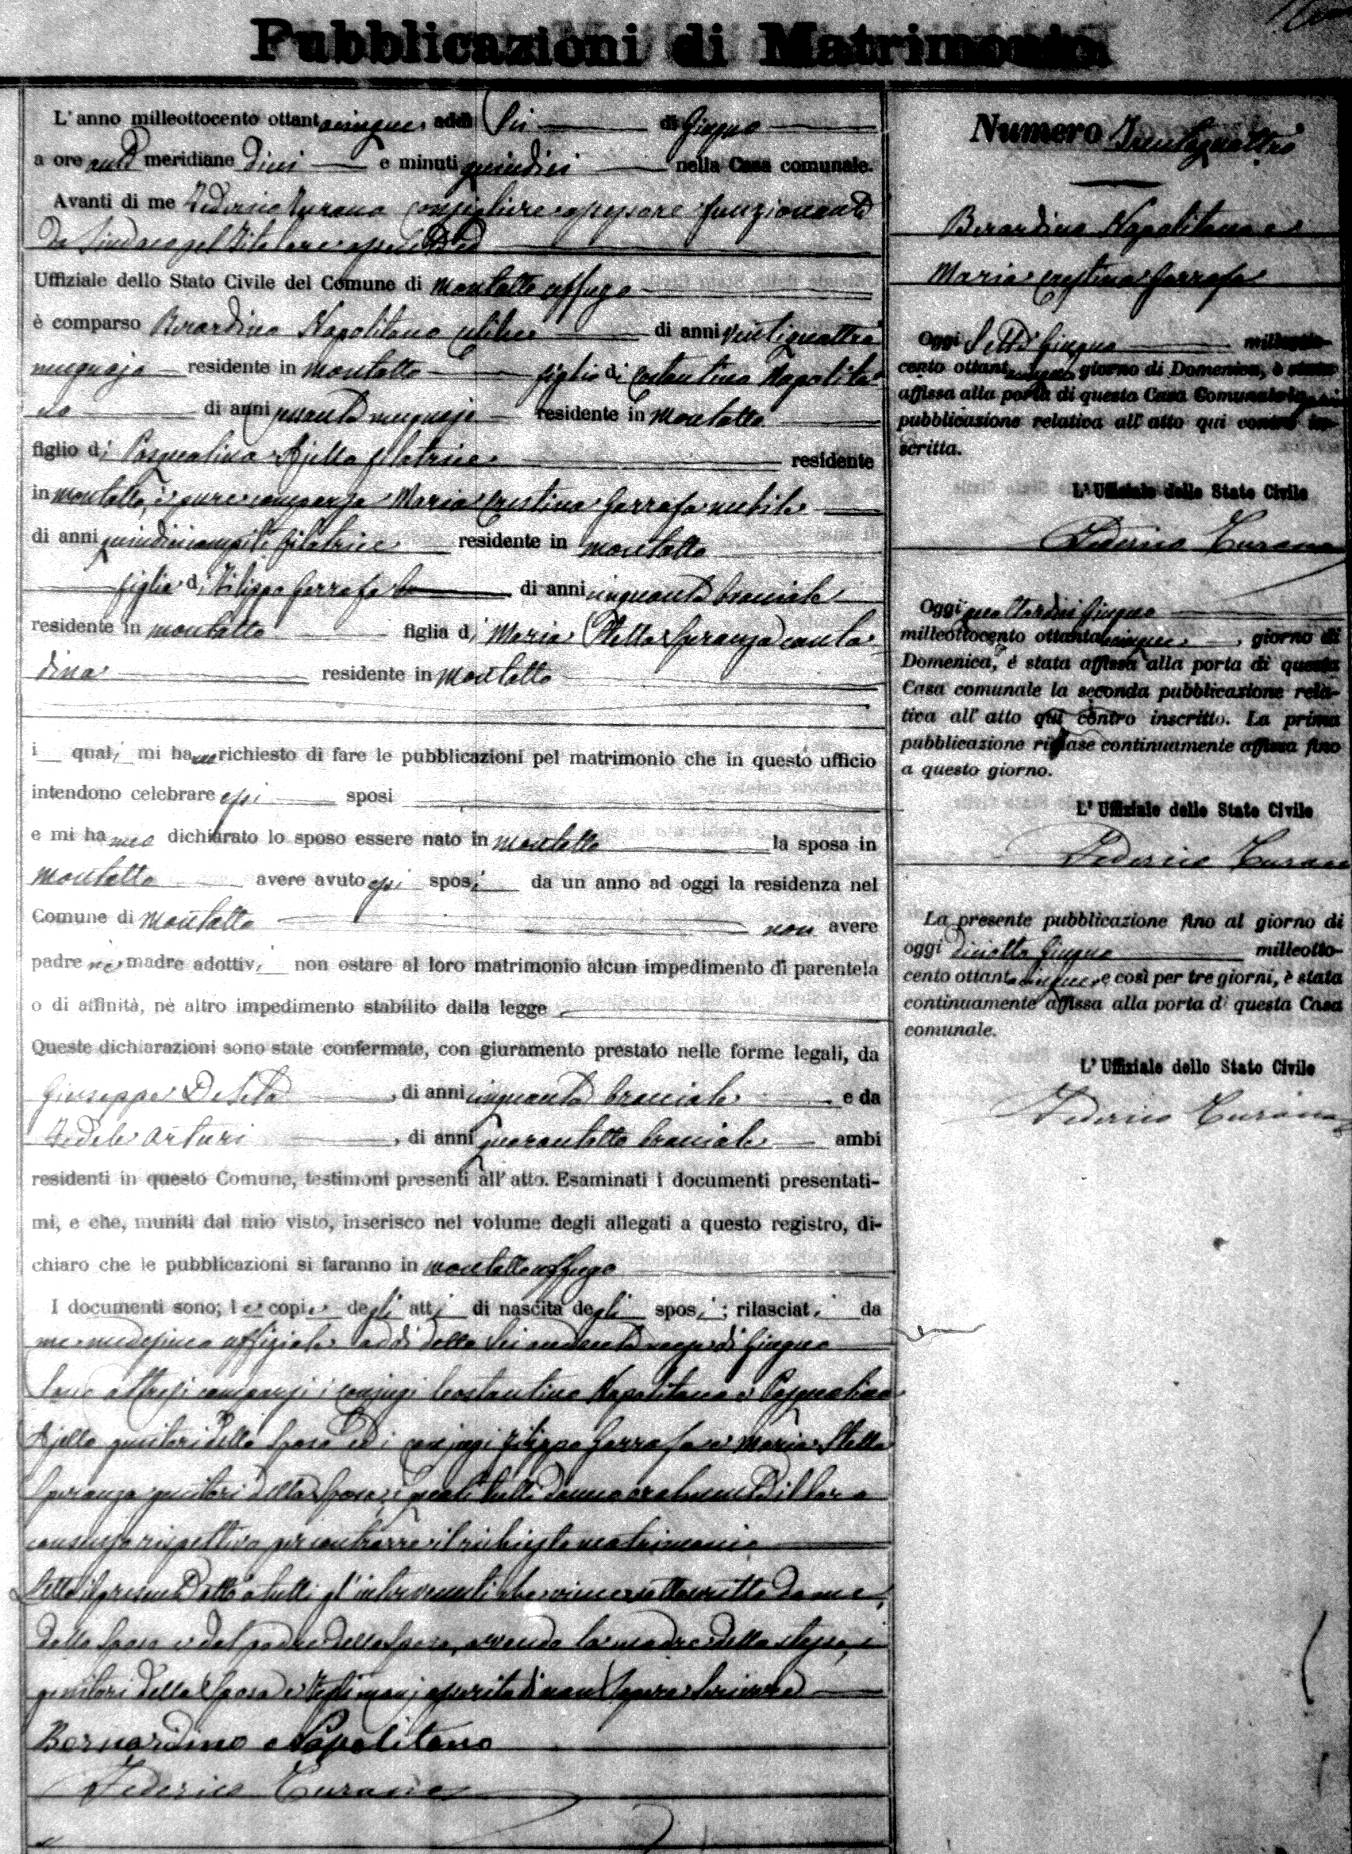 Pubblicazioni di Matrimonio
L'anno milleottocento ottantacinque addì Sei di Giugno
a ore anti meridiane dieci e minuti quindici nella Casa comunale.
Avanti di me Federico Turano consigliere assessore funzionante
da Sindaco pel titolare
Uffiziale dello Stato Civile del Comune di Montalto Uffugo
è comparso Berardino Napolitano celibe di anni ventiquattro
mugnajo residente in Montalto figlio di Costantino Napolita
no di anni sessanta mugnajo residente in Montalto
figlio di Pasqualina Ajello filatrice residente
in Montalto, è pure comparsa Maria Cristina Garrafa nubile
di anni quindici compiti filatrice residente in Montalto
figlia di Filippo Garrafa di anni cinquanta bracciale
residente in Montalto figlia di Maria Stella Speranza conta
dina residente in Montalto
i quali mi hanno richiesto di fare le pubblicazioni pel matrimonio che in questo ufficio
intendono celebrare essi sposi
e mi hanno dichiarato lo sposo essere nato in Montalto la sposa in
Montalto avere avuto essi sposi da un anno ad oggi la residenza nel
Comune di Montalto non avere
padre nè madre adottivi non ostare al loro matrimonio alcun impedimento di parentela
o di affinità, nè altro impedimento stabilito dalla legge
Queste dichiarazioni sono state confermate, con giuramento prestato nelle forme legali, da
Giuseppe De Seta, di anni cinquanta bracciale e da
Fedele Arturi, di anni quarantotto bracciale ambi
residenti in questo Comune, testimoni presenti all'atto. Esaminati i documenti presentati-
mi, e che, muniti dal mio visto, inserisco nel volume degli allegati a questo registro, di-
chiaro che le pubblicazioni si faranno in Montalto Uffugo
I documenti sono; le copie degli atti di nascita degli sposi; rilasciati da
me medesimo uffiziale addì detto Sei andante mese di Giugno
Sono altresì comparsi i conjugi Costantino Napolitano e Pasqualina
Ajello genitori dello Sposo ed i conjugi Filippo Garrafa e Maria Stella
Speranza genitori della Sposa, i quali tutti danno oralmente il loro
consenso rispettivo per contrarre il richiesto matrimonio
Letto il presente atto a tutti gl'intervenuti che viene sottoscritto da me,
dallo Sposo e dal padre dello Sposo, avendo la madre dello stesso, i
genitori della Sposa e testimonj asserito di non Sapere Scrivere
Bernardino Napolitano
Federico Turano
Numero Trentaquattro
Berardino Napolitano e
Maria Cristina Garrafa
Oggi Sette Giugno milleotto-
cento ottantacinque giorno di Domenica, è stata
affissa alla porta di questa Casa Comunale la prima
pubblicazione relativa all'atto qui contro in-
scritta.
L'Uffiziale dello Stato Civile
Federico Turano
Oggi quattordici Giugno
milleottocento ottantacinque, giorno di
Domenica, è stata affissa alla porta di questa
Casa comunale la seconda pubblicazione rela-
tiva all'atto qui contro inscritto. La prima
pubblicazione rimase continuamente affissa fino
a questo giorno.
L'Uffiziale dello Stato Civile
Federico Turano
La presente pubblicazione fino al giorno di
oggi diciotto Giugno milleotto-
cento ottantacinque, e così per tre giorni, è stata
continuamente affissa alla porta di questa Casa
comunale.
L'Uffiziale dello Stato Civile
Federico Turano